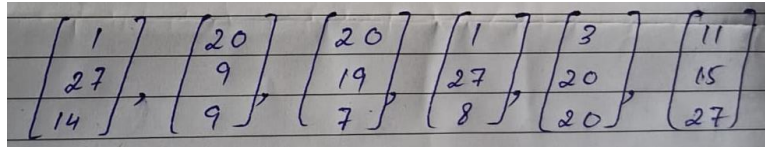 [1 27 14], [20 9 9], [20 19 7], [1 27 8], [3 20 20], [11 15 27]